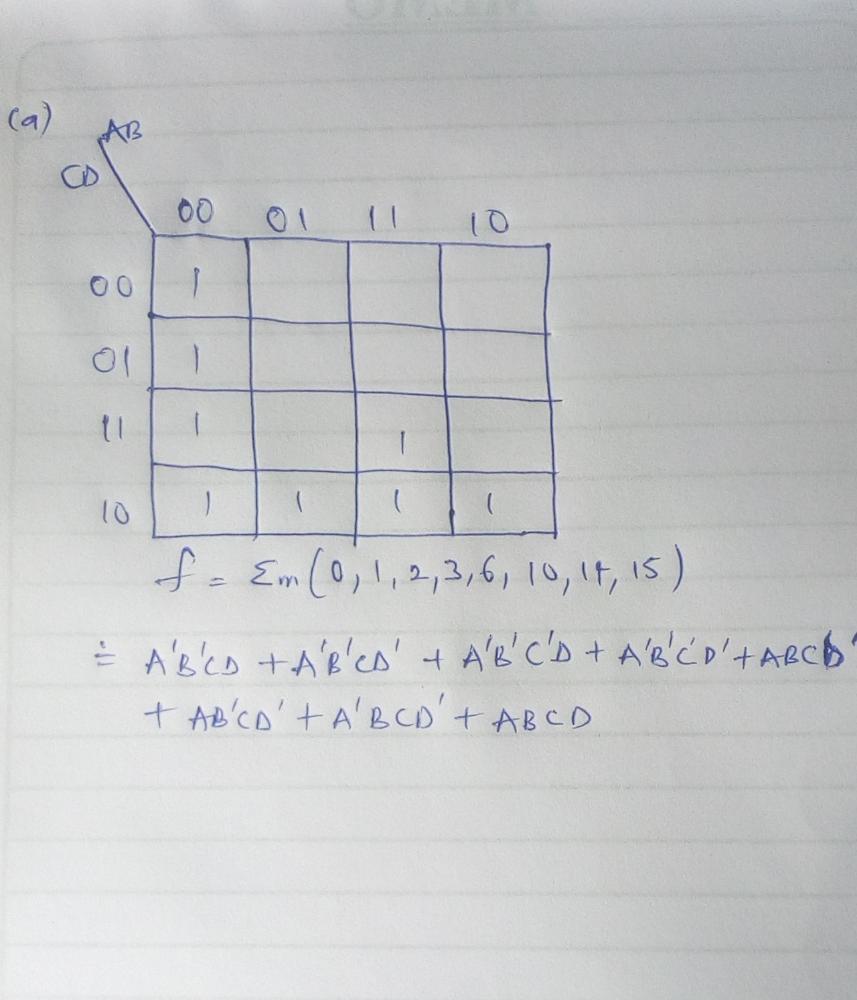 (a)
AB
CD
00 01 11 10
00 1
01 1
11 1 1
10 1 1 1 1
f = Σm(0,1,2,3,6,10,14,15)
= A'B'CD + A'B'CD' + A'B'C'D + A'B'C'D' + ABCD'
+ AB'CD' + A'BCD' + ABCD